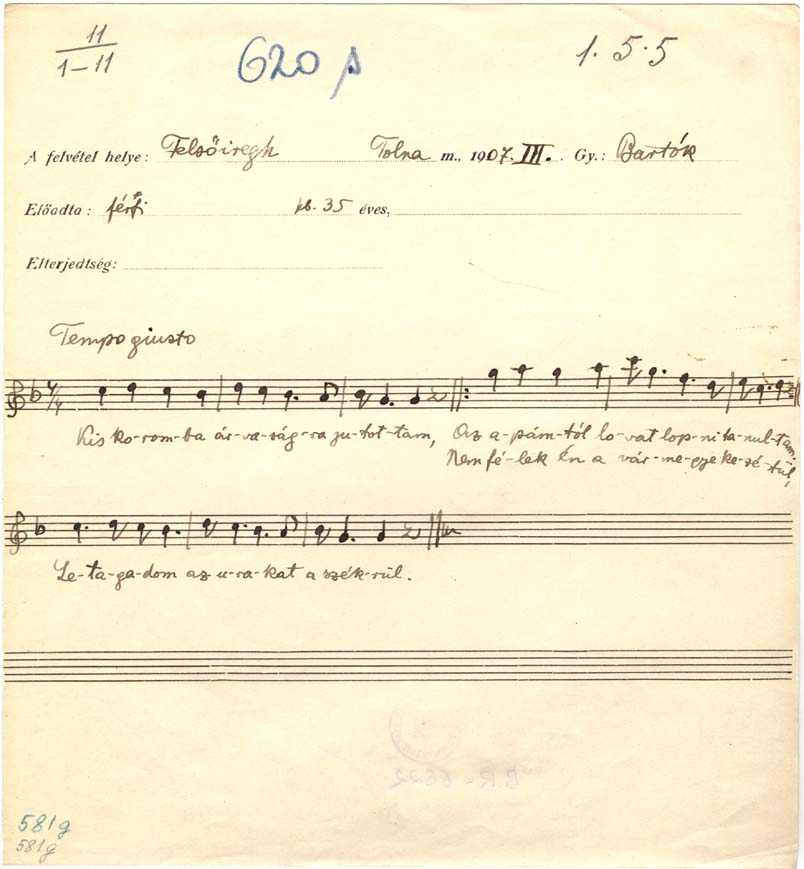 11
1–11
620 s
1. 5. 5
A felvétel helye: Felsőiregh Tolna m., 1907. III. Gy.: Bartók
Előadta: férfi kb. 35 éves,
Elterjedtség:
Tempo giusto
4/4
Kis ko-rom-ba ár-va-ság-ra ju-tot-tam, Az a-pám-tól lo-vat lop-ni ta-nul-tam.
Nem fé-lek Én a vár-me-gye ke-zé-tül,
Le-ta-ga-dom az u-ra-kat a szék-rül.
581g
581g